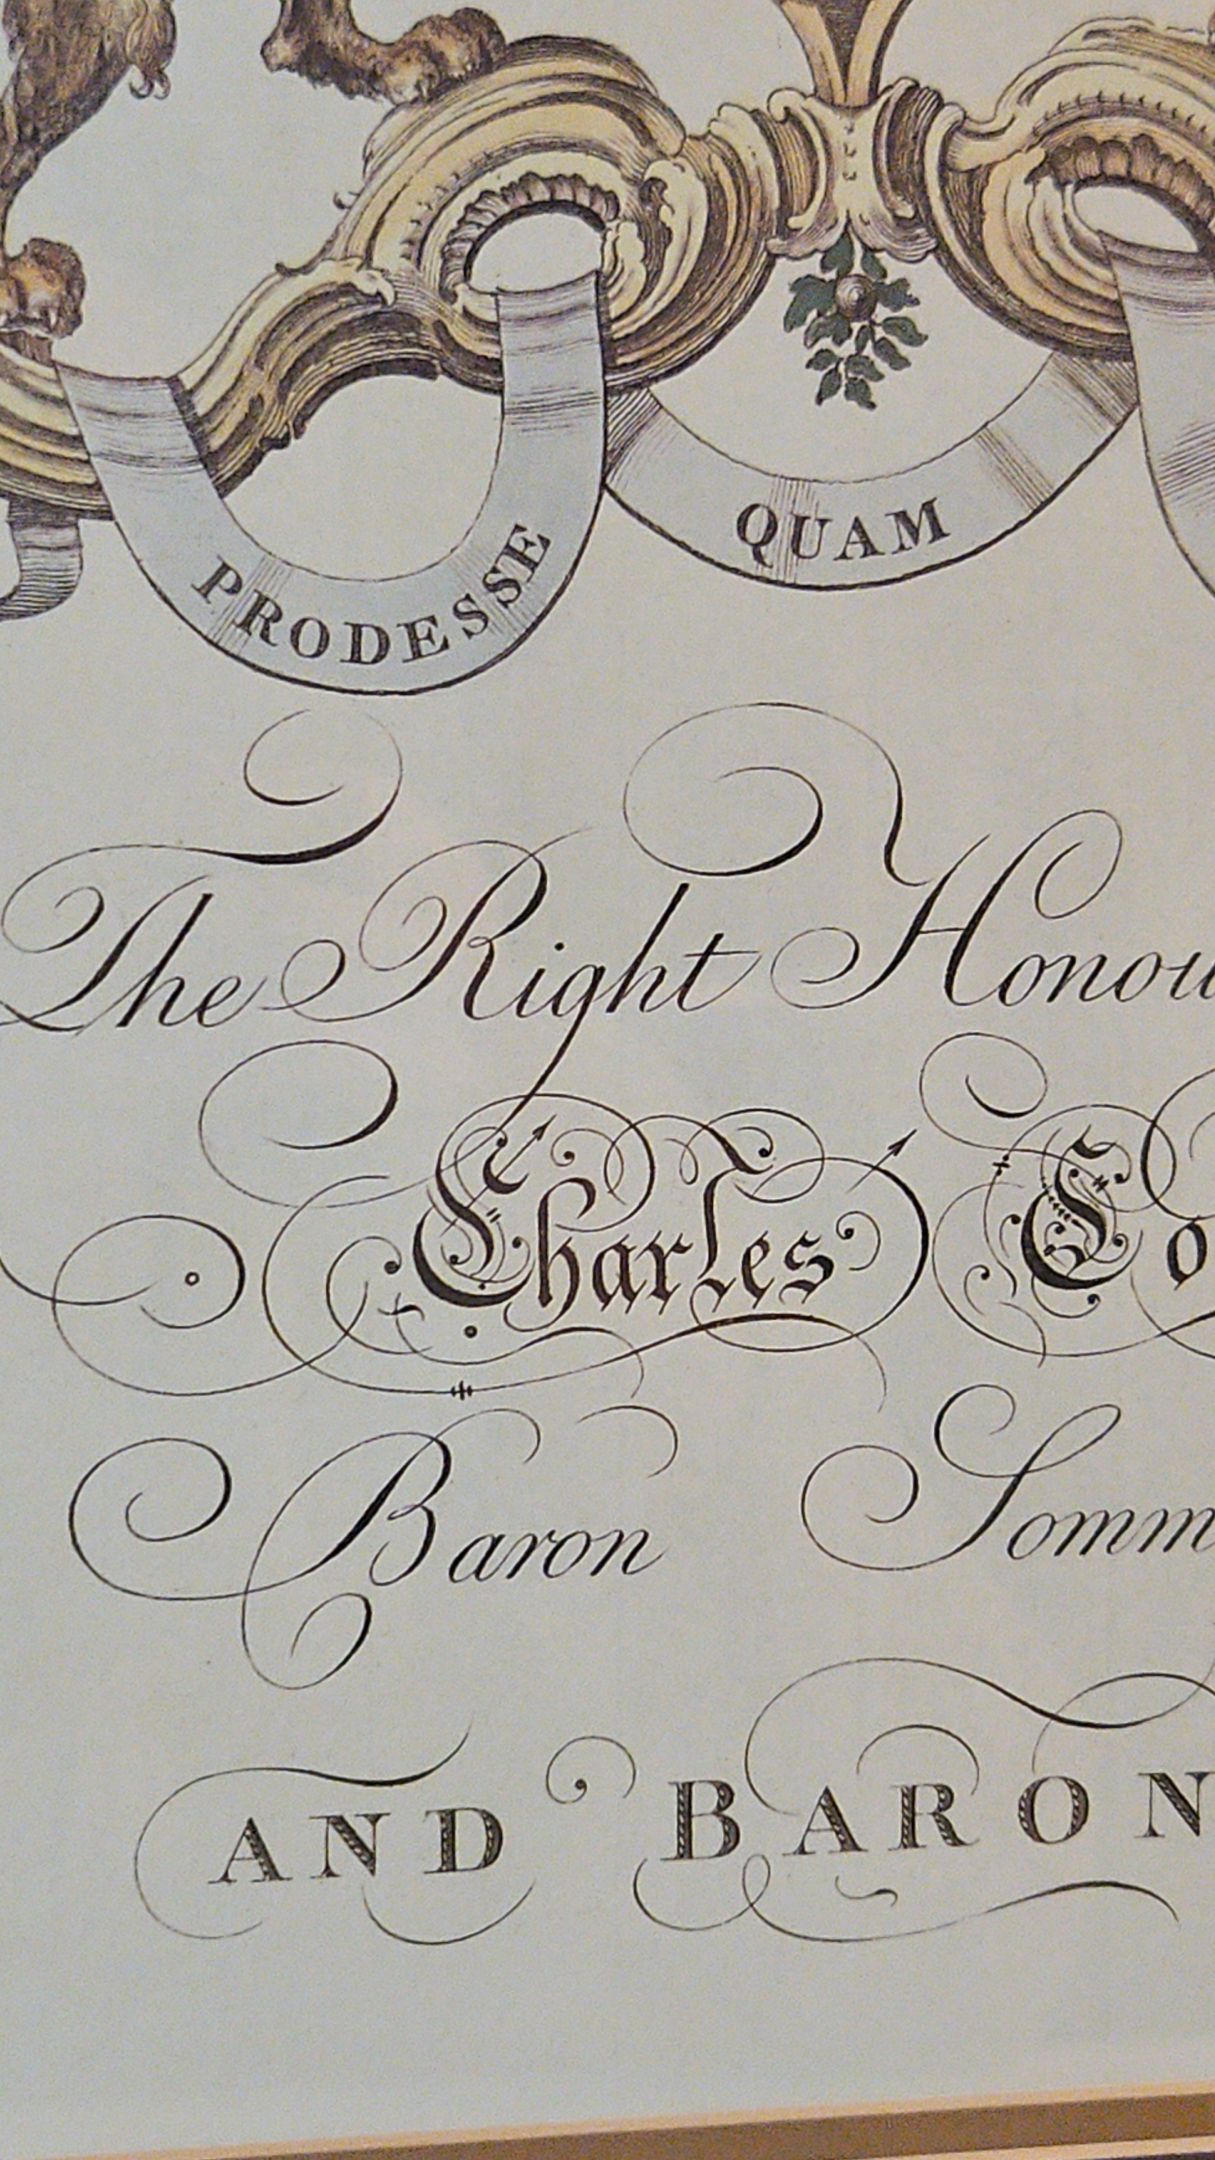 PRODESSE QUAM
The Right Honou
Charles Co
Baron Somm
AND BARON